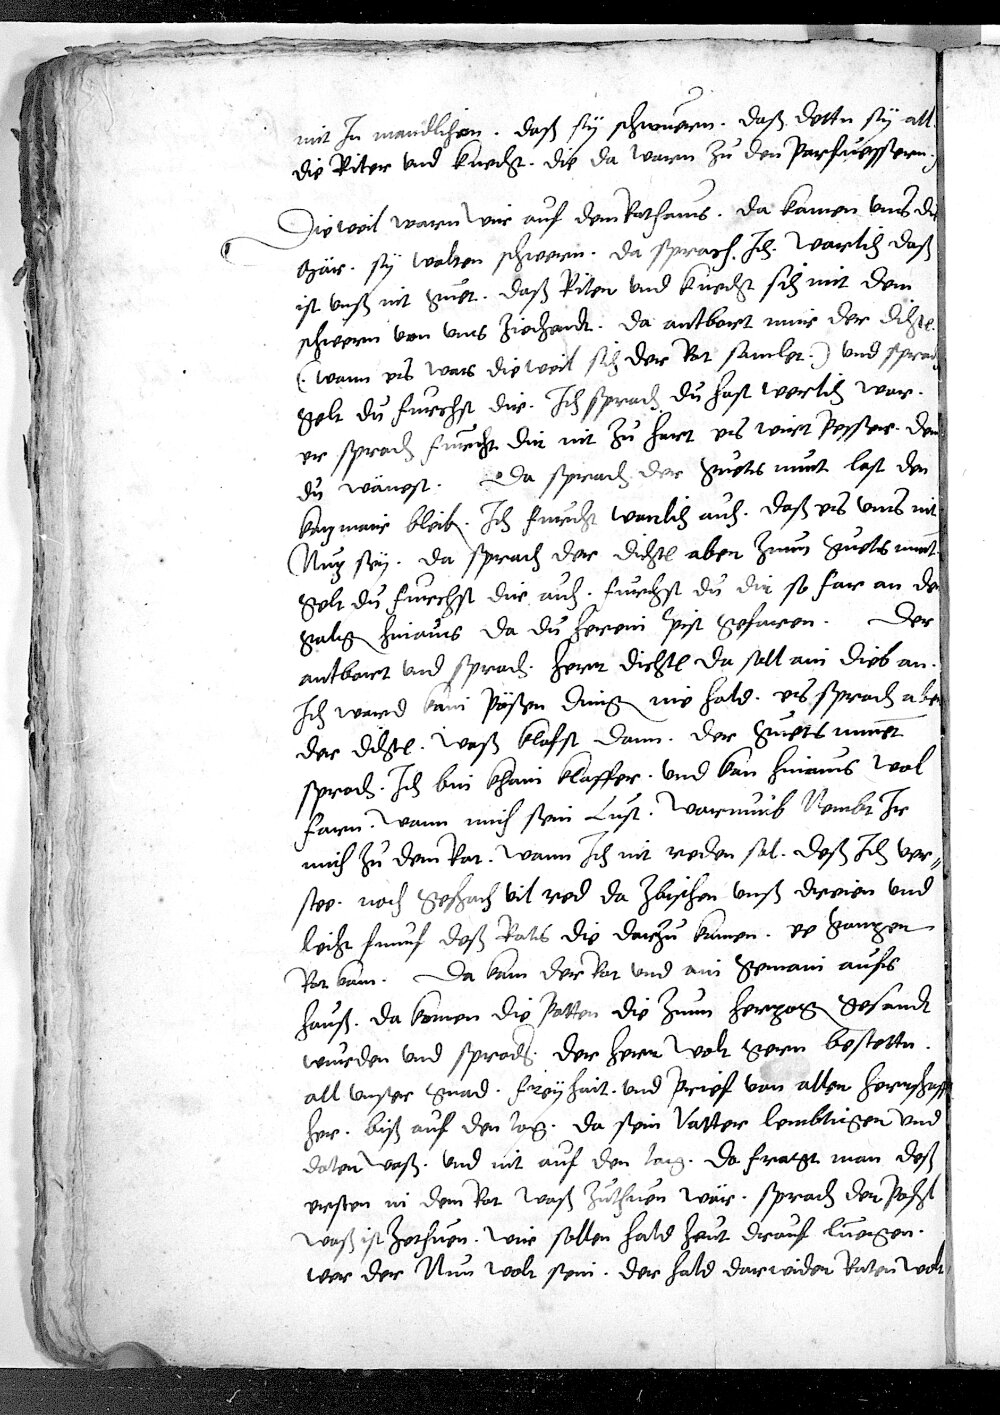 mit In mandlichen . daß sÿ schwuern . daß detten sÿ all
die Riter und knecht . die da warn Zu den Parfuessern .
Die weil warn wir auf dem Rathaus . da kamen uns die
Mär . sÿ wolten schwern . da sprach Ich . warlich daß
ist unß nit guet . daß Riter und knecht sich mit dem
schwern von uns Ziechendt . da antbort mir der dichtl
(. wann es was die weil sich der Rat samlet .) und sprach
gelt du furchst dir . Ich sprach du hast werlich war .
er sprach furcht dir nit Zu hart es wirt Pesser . den
du wänest . Da sprach der guets muet last den
bleib . Ich furcht warlich auch . daß es uns nit
Nuz seÿ . da sprach der dichtl aber Zuem guets muet
gelt du furchst dir auch . furchst du dir so far an de
galg hinaus da du herein pist gefaren . Der
antbort und sprach . herr dichtl da soll ain dieb an .
Ich ward kain Pösen ding nie hold . es sprach aber
der dichtl . waß klafst dann . der guets muet
sprach . Ich bin khain klaffer . und kan hinaus wol
farn . wann mich sein Lust . warumb Nembt Ir
mich Zu dem Rat . wann Ich nit reden sol . deß Ich ver=
stee . noch geschach vil red da Zbischen unß dreien und
leicht funf deß Rats die darzu kamen . ee ganzer
Rat kam . Da kam der Rat und ain gemain aufs
hauß . da komen die Potten die Zuem herzog gesandt
wurden und sprach . der herr wolt gern bestetten .
all unser gnad . freÿhait . und Prief von allen herrschaft
her . biß auf den tag . da sein Vatter lembtigen und
daten waß . und nit auf den tag . da fragt man deß
ersten in dem Rat waß Zuthuen wär . sprach der Pözl
waß ist Zethuen . wir sollen hald heut drauf luegen .
wer der Nun wolt sein . der hald darwider Raten wolt